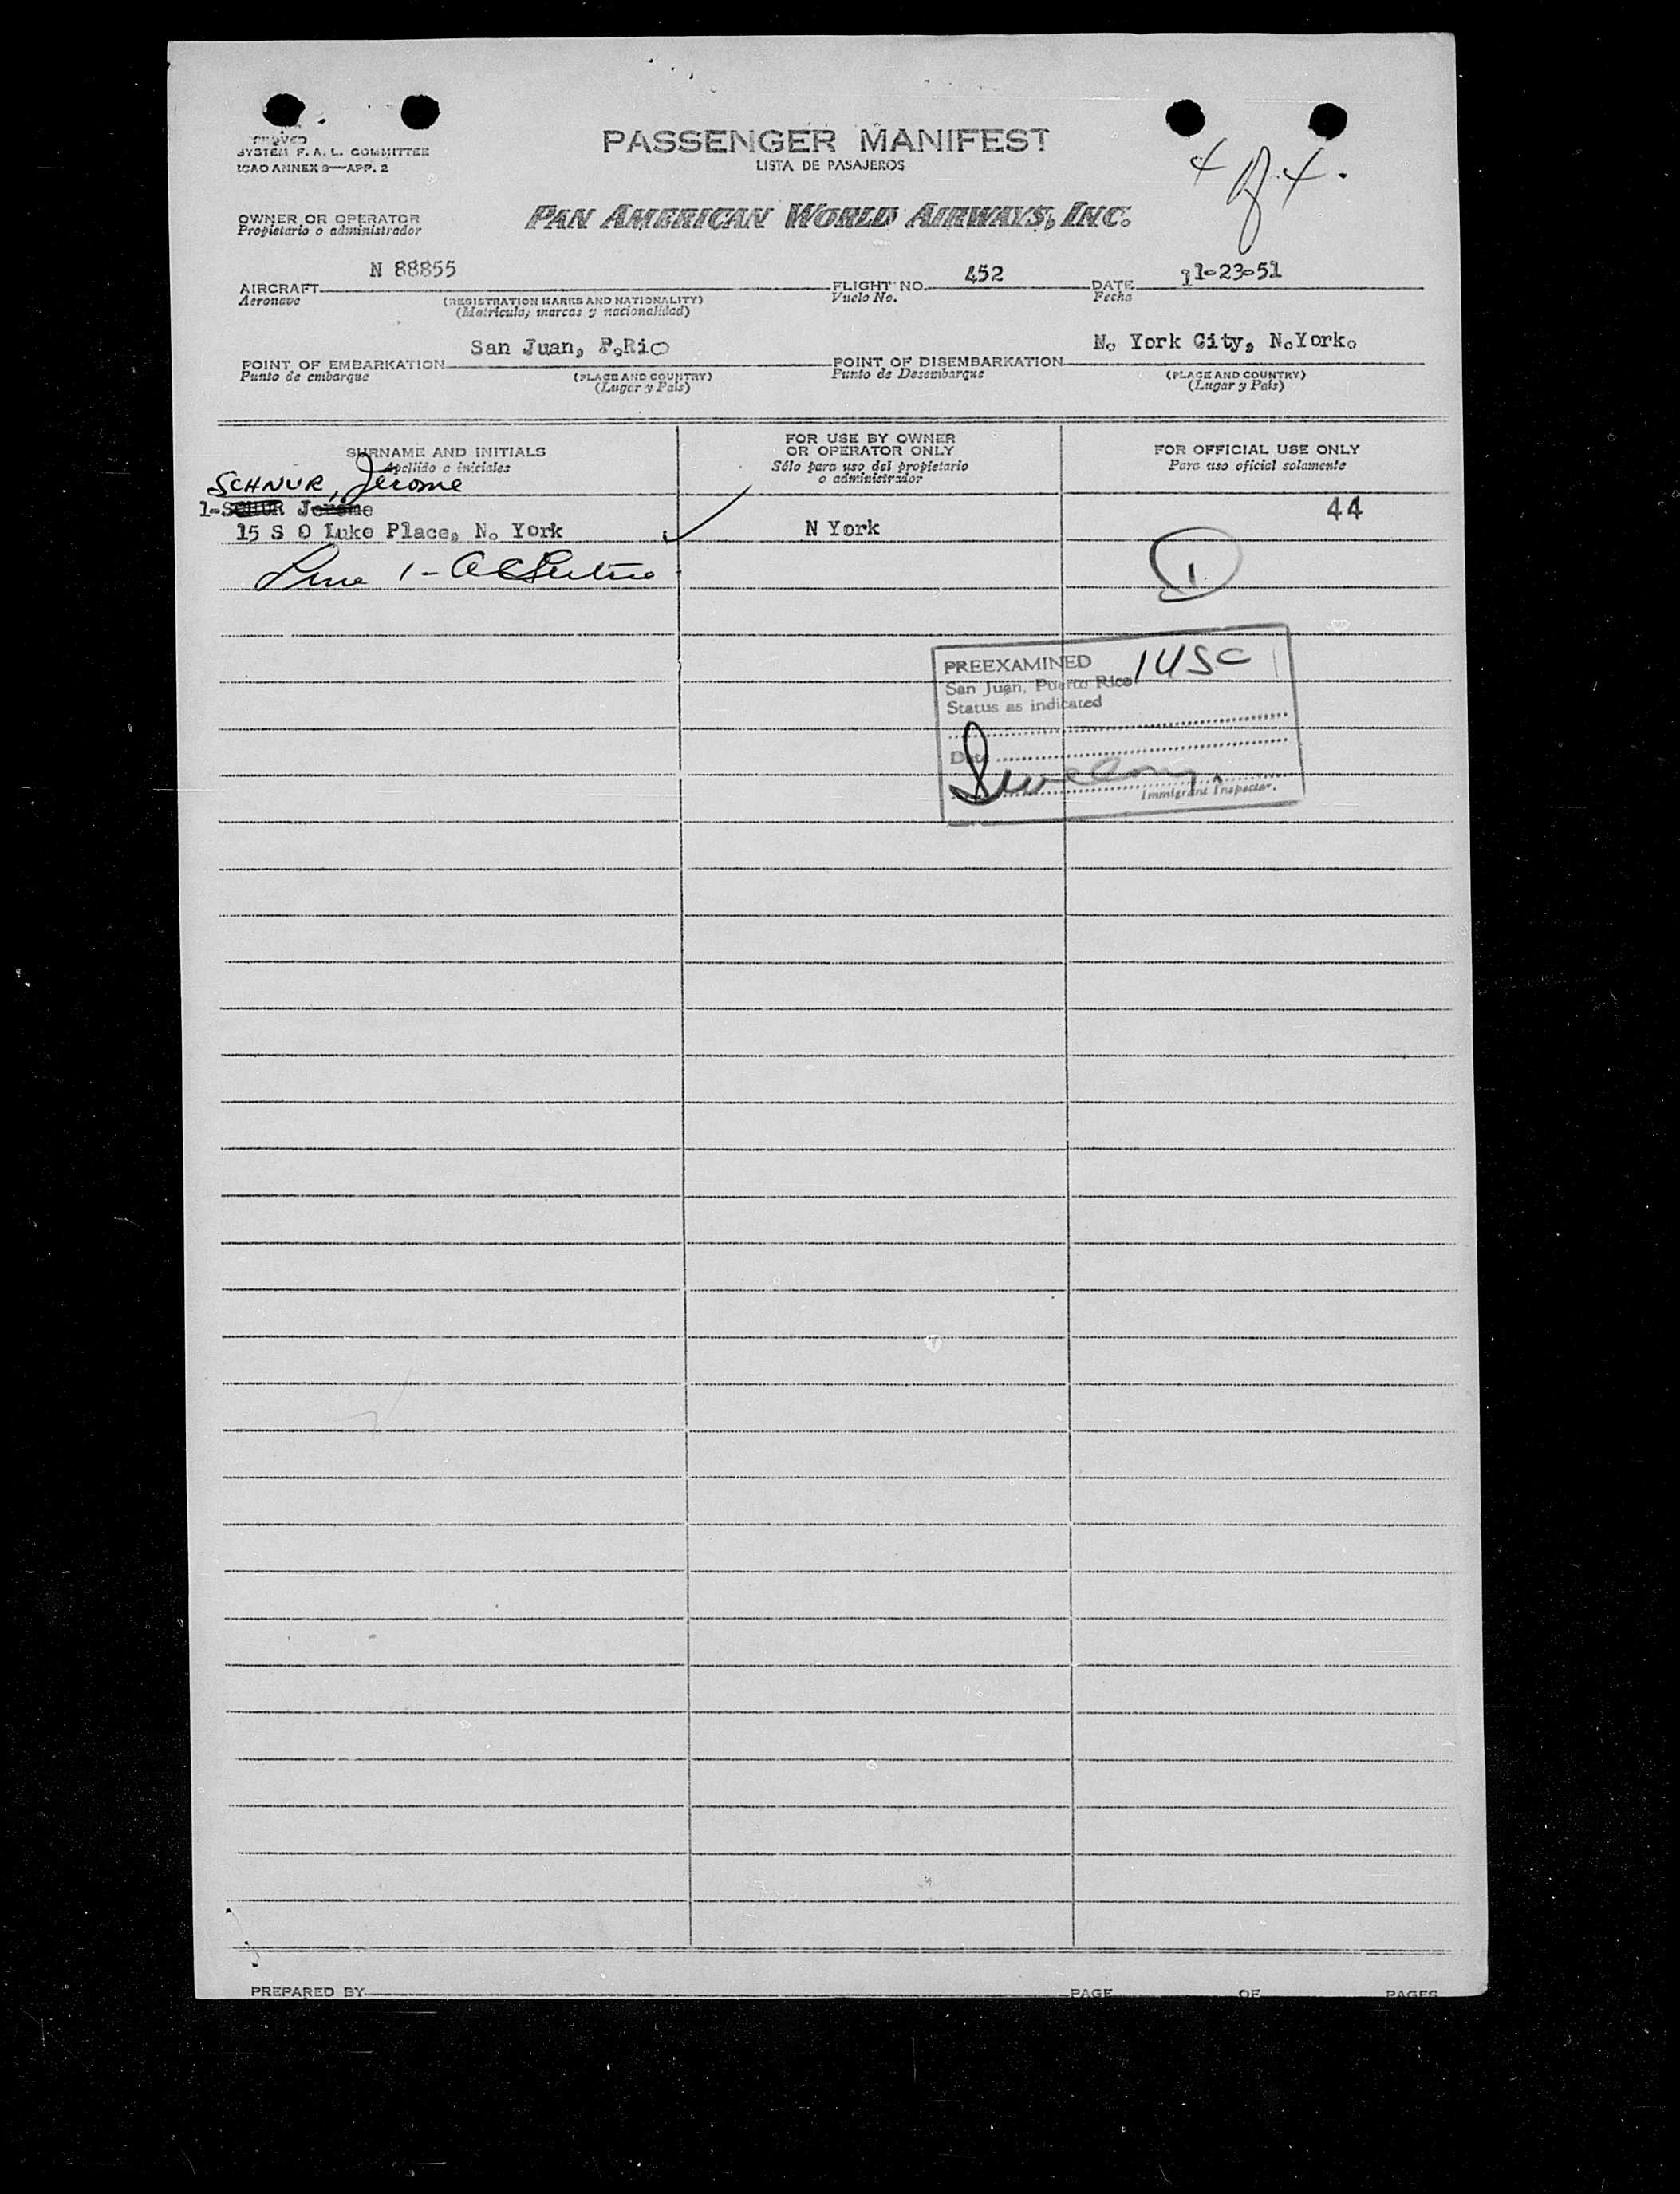 PASSENGER MANIFEST
LISTA DE PASAJEROS
SYSTEM F. A. L. COMMITTEE
ICAO ANNEX 9—APP. 2
4 of 4.
OWNER OR OPERATOR
Propietario o administrador
PAN AMERICAN WORLD AIRWAYS, INC.
AIRCRAFT N 88855 FLIGHT NO. 452 DATE 11-23-51
Aeronave (REGISTRATION MARKS AND NATIONALITY) Vuelo No. Fecha
(Matricula, marcas y nacionalidad)
POINT OF EMBARKATION San Juan, P.Rico POINT OF DISEMBARKATION N. York City, N.York.
Punto de embarque (PLACE AND COUNTRY) Punto de Desembarque (PLACE AND COUNTRY)
(Lugar y País) (Lugar y País)
SURNAME AND INITIALS
Apellido e iniciales
FOR USE BY OWNER
OR OPERATOR ONLY
Sólo para uso del propietario
o administrador
FOR OFFICIAL USE ONLY
Para uso oficial solamente
SCHNUR, Jerome
1-SCHUR Jerome 44
15 S O Luke Place, N. York N York
Line 1- 1
PREEXAMINED 1 USC
San Juan, Puerto Rico
Status as indicated
Date
Immigrant Inspector.
PREPARED BY PAGE OF PAGES